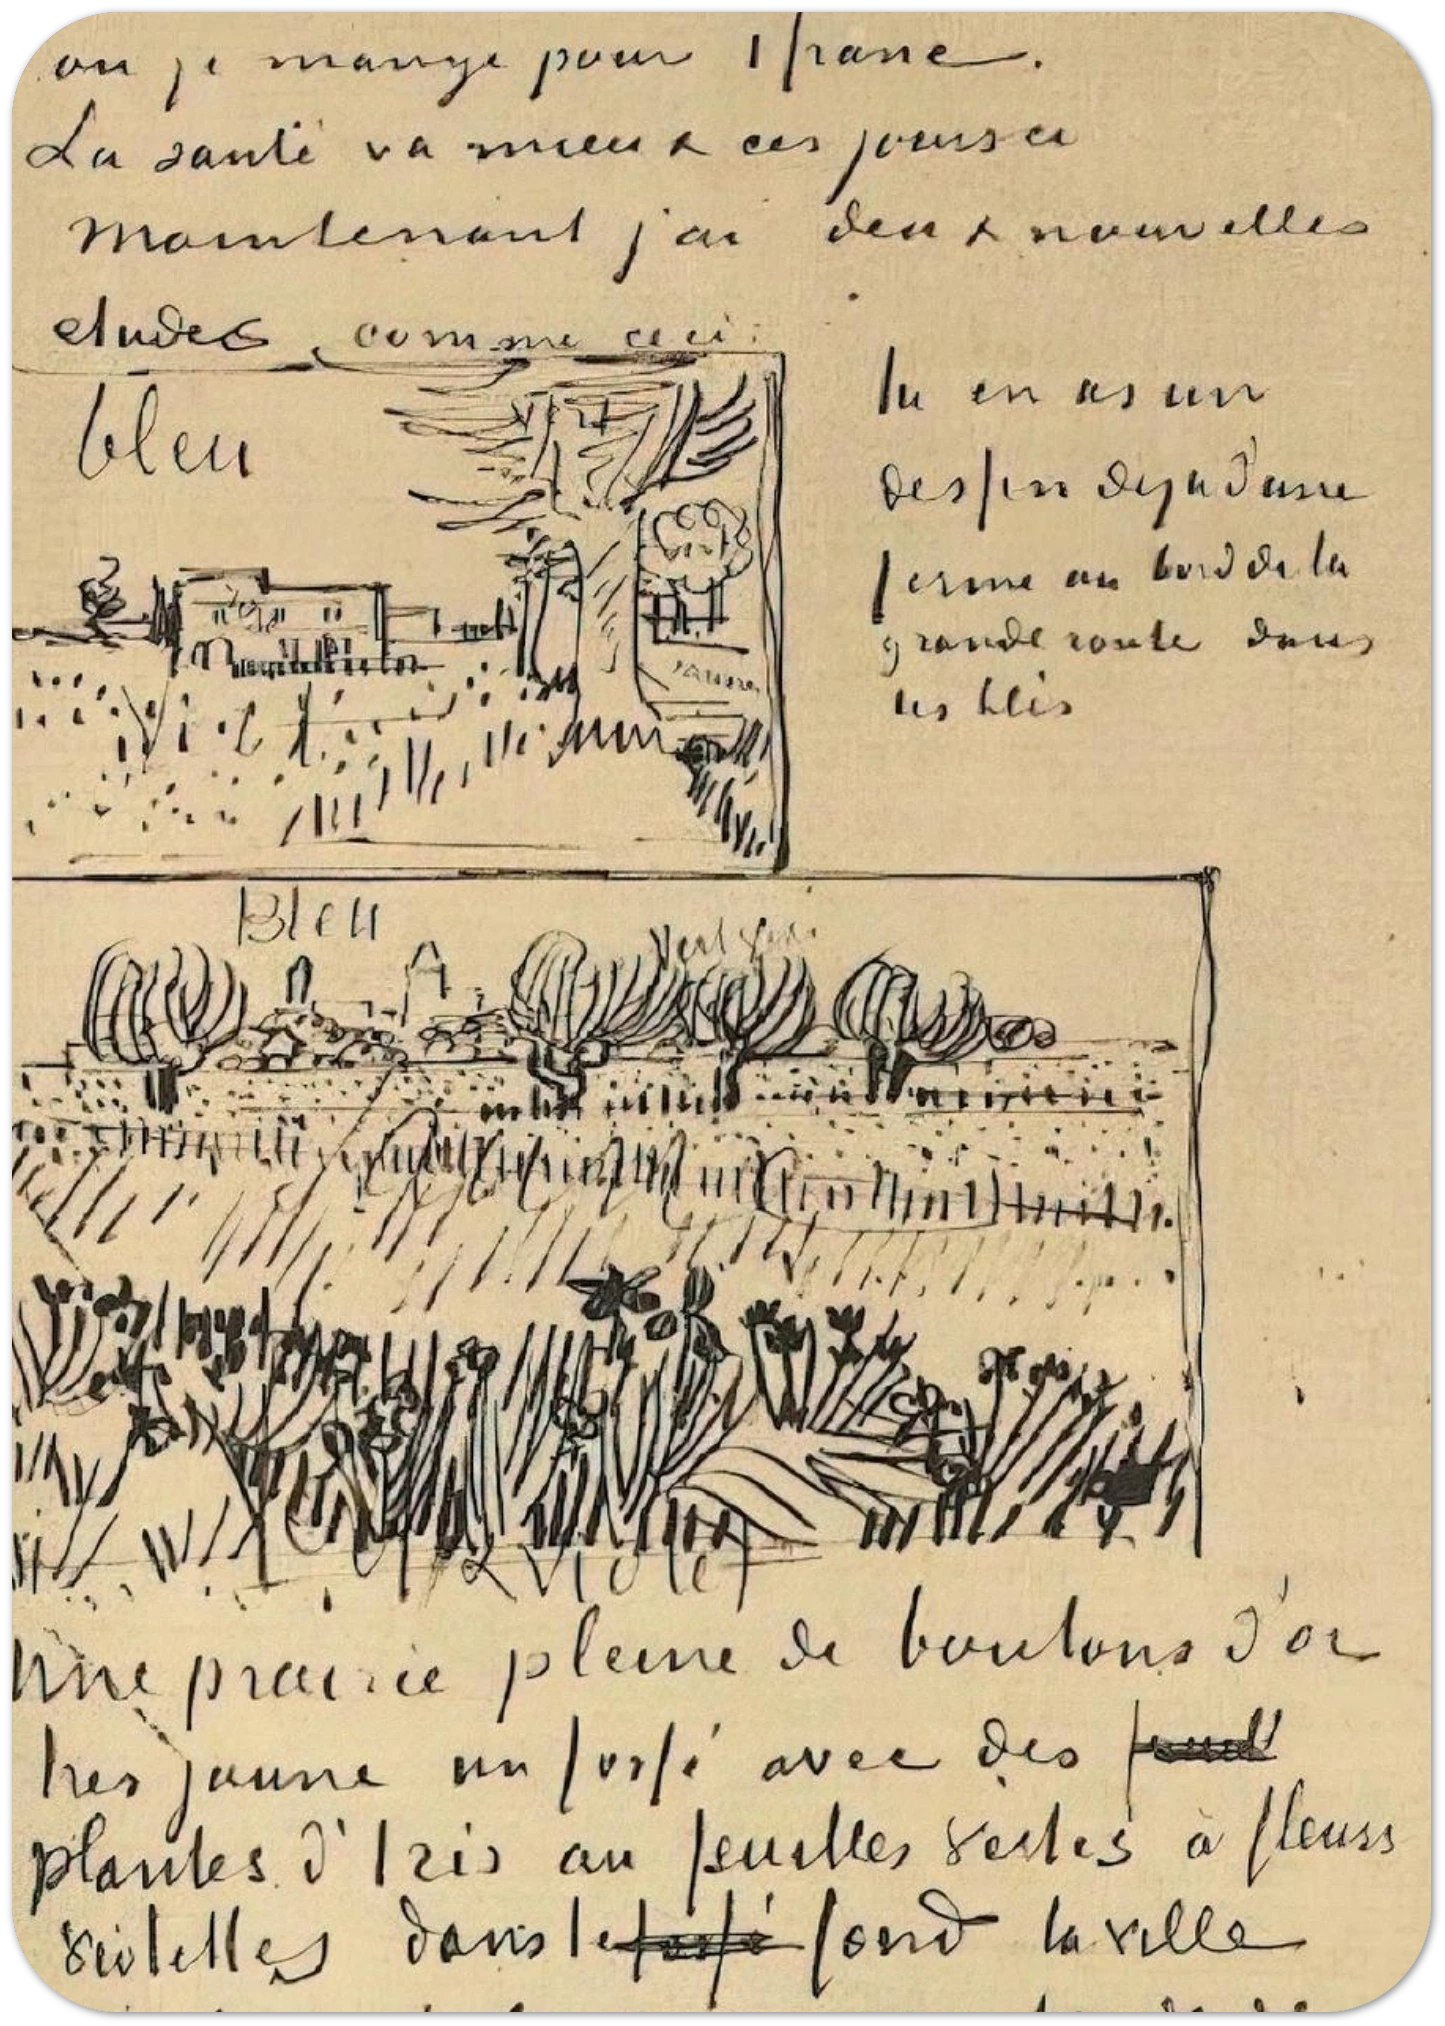 ou je mange pour 1 franc.
La santé va mieux ces jours ci
Maintenant j'ai deux nouvelles
etudes comme ceci:
bleu
vert
vert
jaune
tu en as un
dessin deja d'une
ferme au bord de la
grande route dans
les blés
Bleu
vert gris
violet
Une prairie pleine de boutons d'or
tres jaune un fossé avec des
plantes d'Iris au feuilles vertes à fleurs
violettes dans le fossé fond la ville